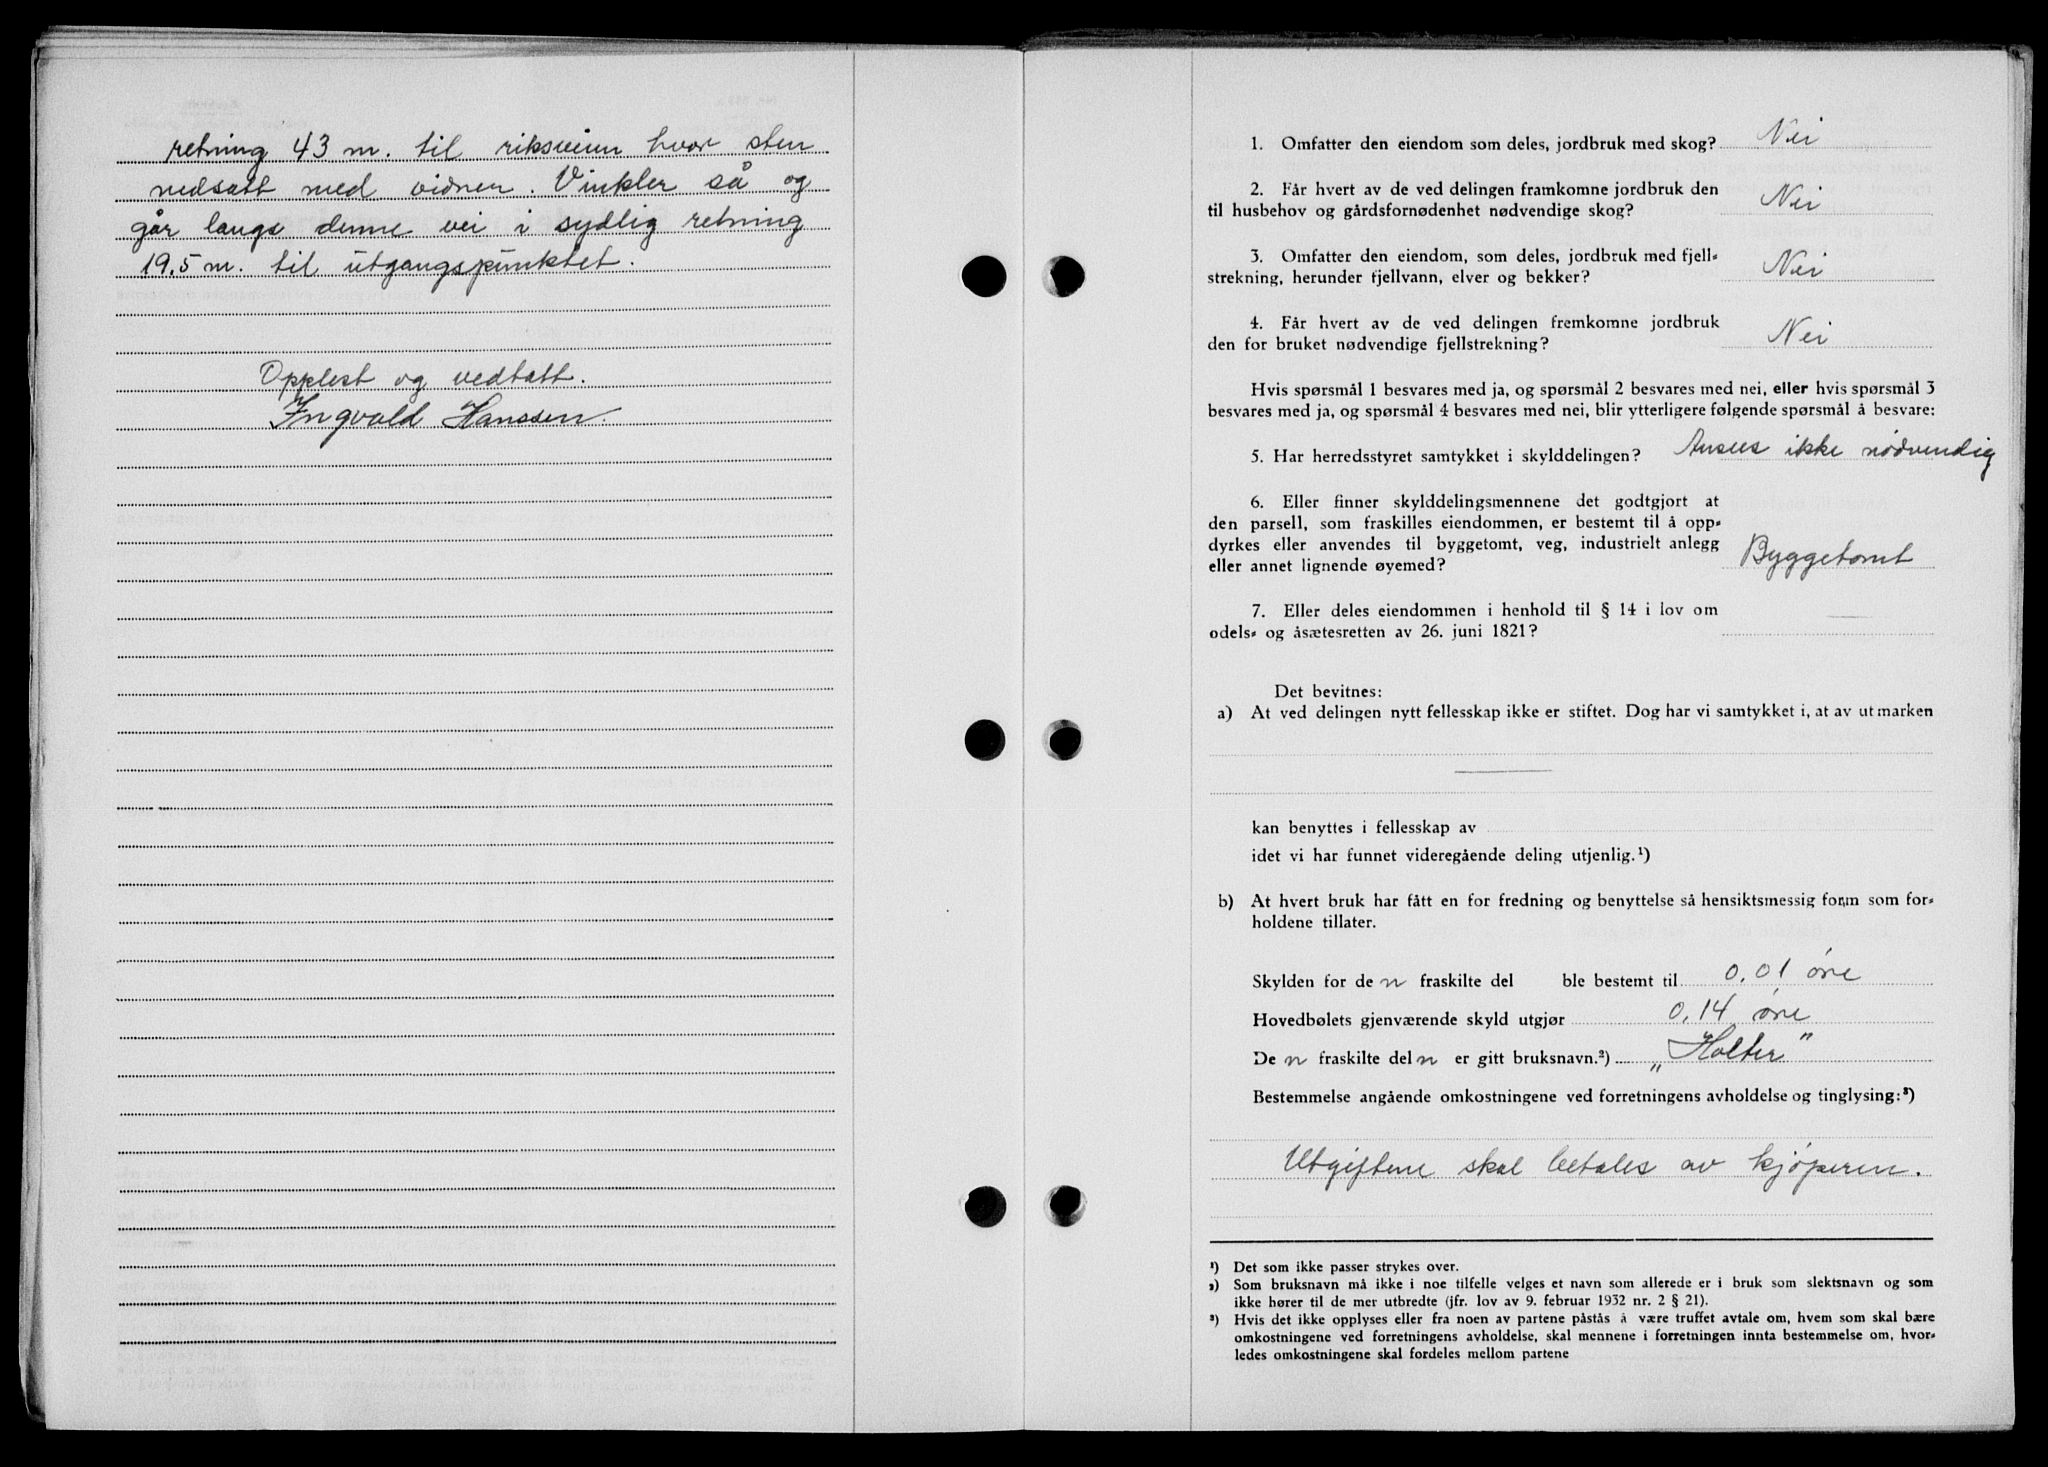 retning 43 m. til riksveien hvor sten
nedsatt med vidner. Vinkler så og
går langs denne vei i sydlig retning
19,5 m. til utgangspunktet.
Opplest og vedtatt.
Ingvald Hanssen.
1. Omfatter den eiendom som deles, jordbruk med skog? Nei
2. Får hvert av de ved delingen framkomne jordbruk den
til husbehov og gårdsfornødenhet nødvendige skog? Nei
3. Omfatter den eiendom, som deles, jordbruk med fjell-
strekning, herunder fjellvann, elver og bekker? Nei
4. Får hvert av de ved delingen fremkomne jordbruk
den for bruket nødvendige fjellstrekning? Nei
Hvis spørsmål 1 besvares med ja, og spørsmål 2 besvares med nei, eller hvis spørsmål 3
besvares med ja, og spørsmål 4 besvares med nei, blir ytterligere følgende spørsmål å besvare:
5. Har herredsstyret samtykket i skylddelingen? Ansees ikke nødvendig
6. Eller finner skylddelingsmennene det godtgjort at
den parsell, som fraskilles eiendommen, er bestemt til å opp-
dyrkes eller anvendes til byggetomt, veg, industrielt anlegg
eller annet lignende øyemed? Byggetomt
7. Eller deles eiendommen i henhold til § 14 i lov om
odels- og åsætesretten av 26. juni 1821? —
Det bevitnes:
a) At ved delingen nytt fellesskap ikke er stiftet. Dog har vi samtykket i, at av utmarken
—
kan benyttes i fellesskap av
idet vi har funnet videregående deling utjenlig.¹)
b) At hvert bruk har fått en for fredning og benyttelse så hensiktsmessig form som for-
holdene tillater.
Skylden for de n fraskilte del ble bestemt til 0,01 øre
Hovedbølets gjenværende skyld utgjør 0,14 øre
De n fraskilte del n er gitt bruksnavn.²) „Holter"
Bestemmelse angående omkostningene ved forretningens avholdelse og tinglysing:³)
Utgiftene skal betales av kjøperen.
¹) Det som ikke passer strykes over.
²) Som bruksnavn må ikke i noe tilfelle velges et navn som allerede er i bruk som slektsnavn og som
ikke hører til de mer utbredte (jfr. lov av 9. februar 1932 nr. 2 § 21).
³) Hvis det ikke opplyses eller fra noen av partene påstås å være truffet avtale om, hvem som skal bære
omkostningene ved forretningens avholdelse, skal mennene i forretningen innta bestemmelse om, hvor-
ledes omkostningene skal fordeles mellom partene